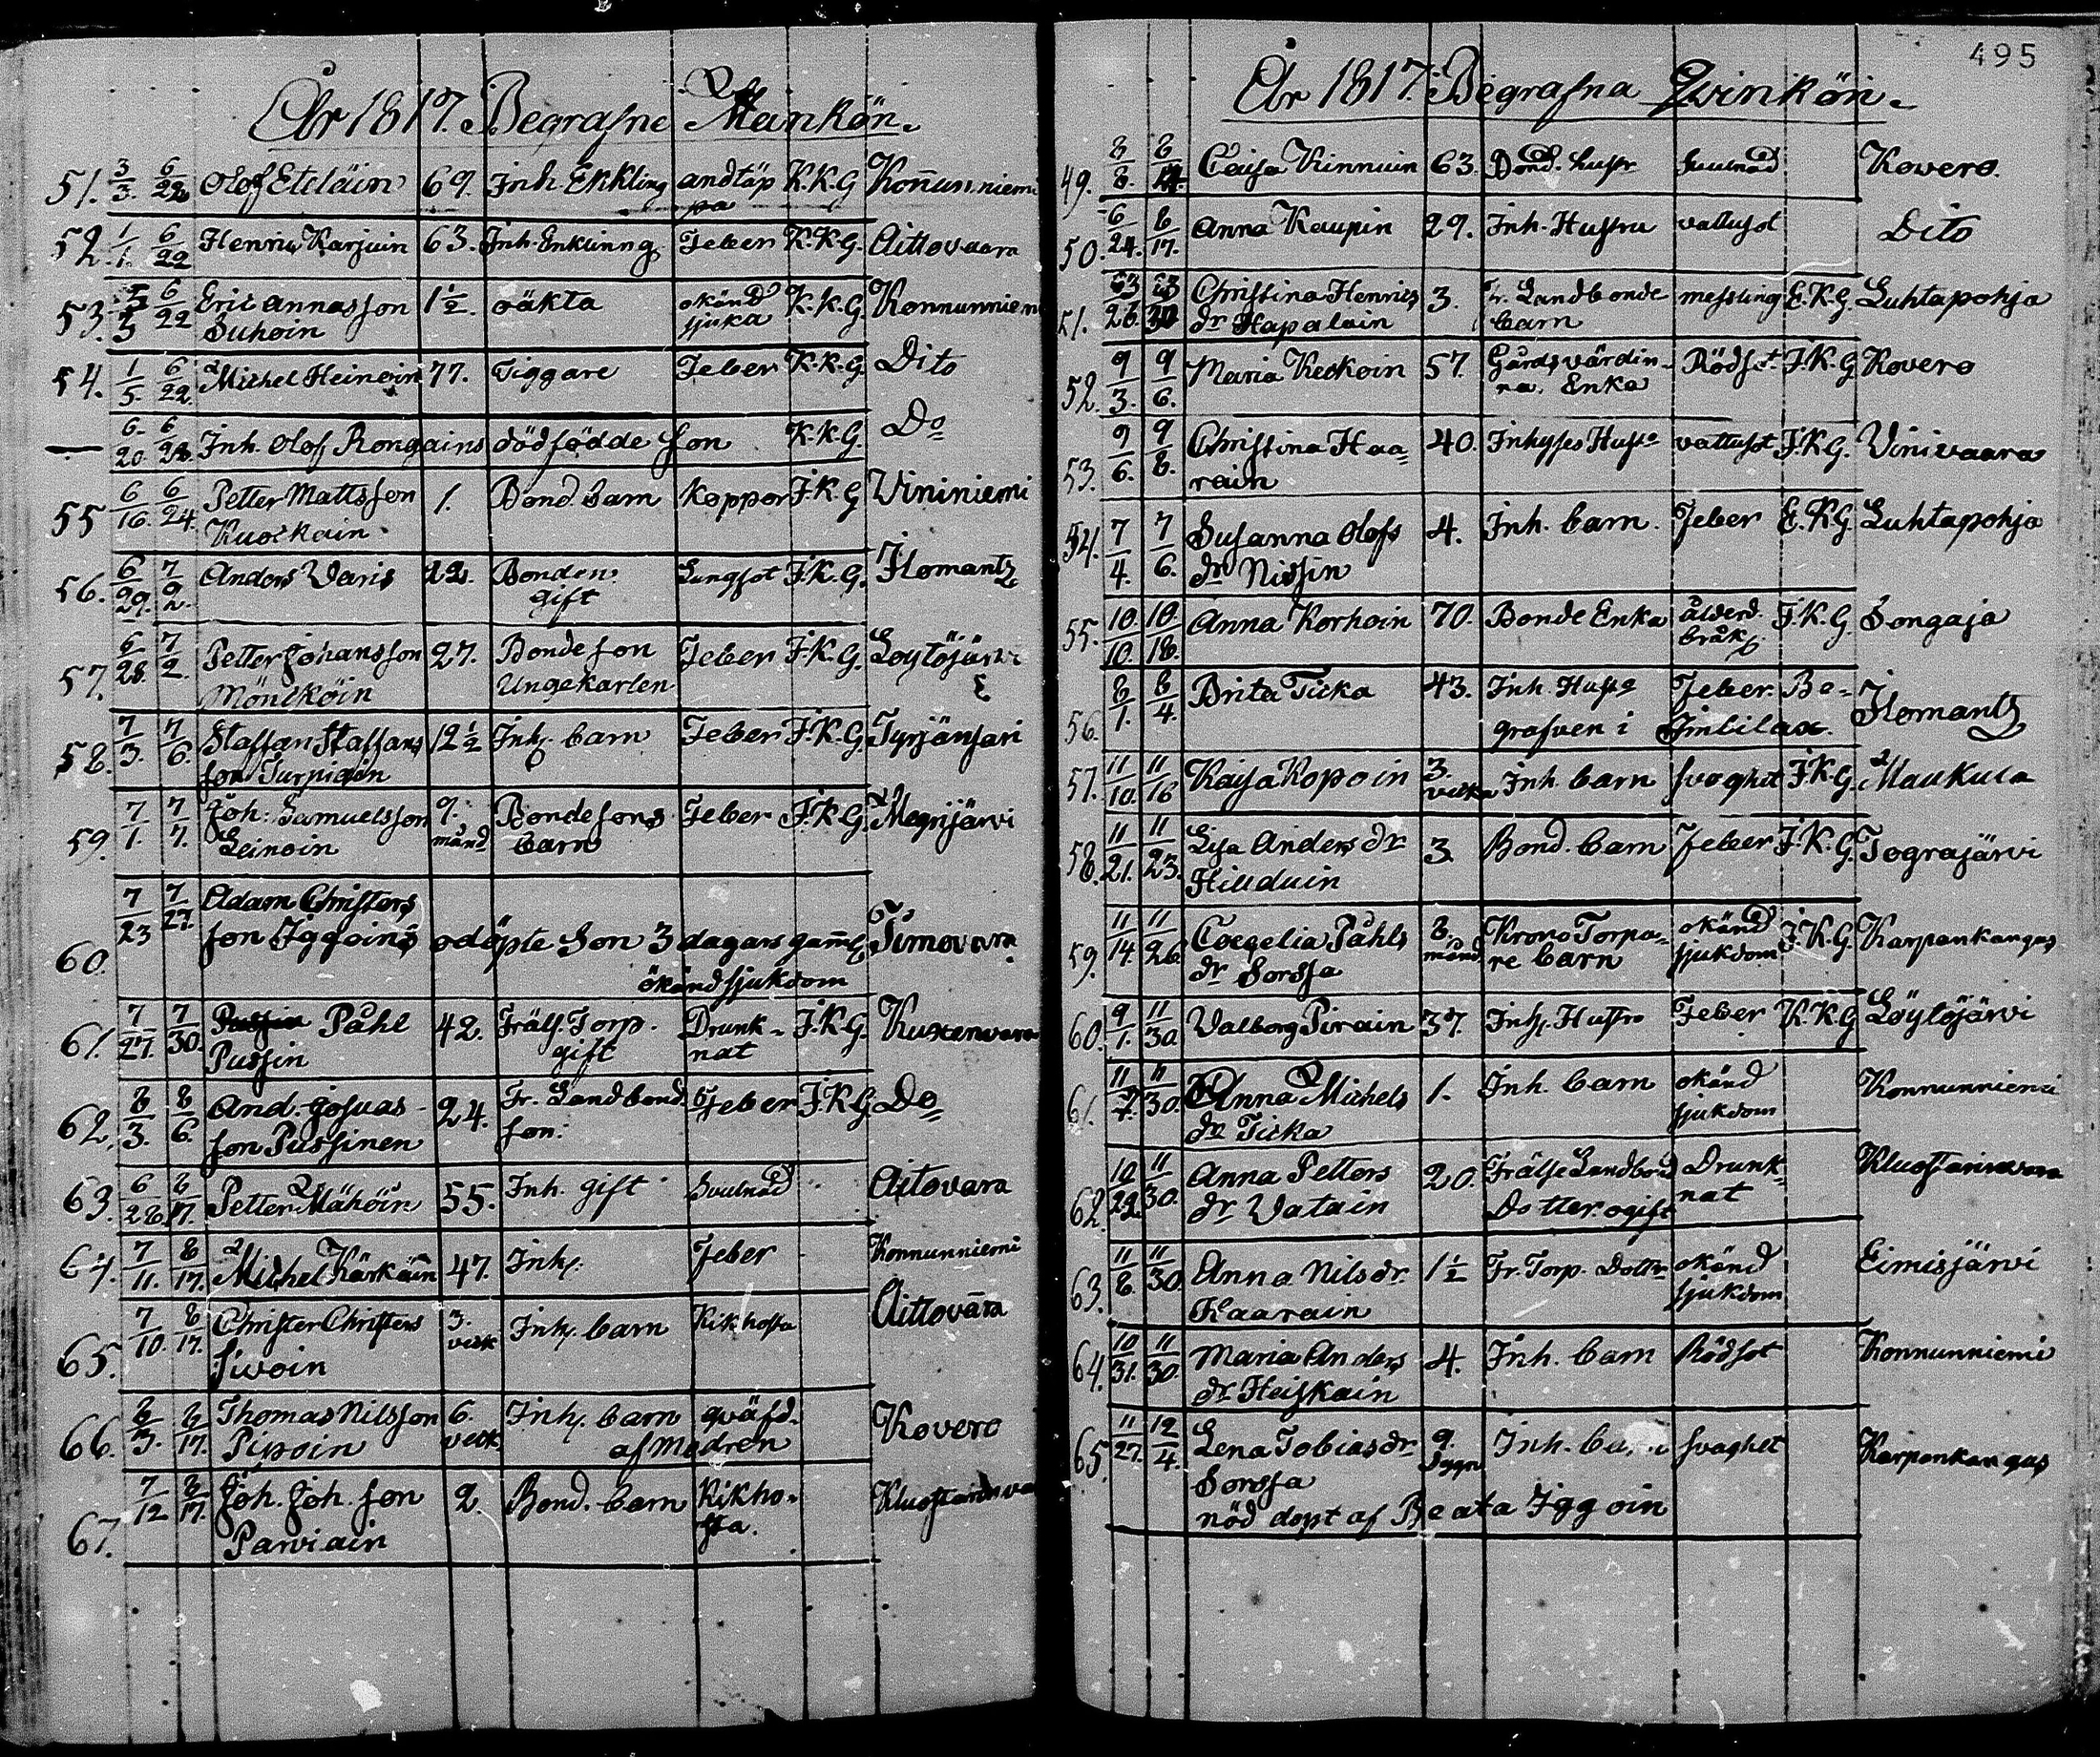 År 1817. Begrafne Mankön.
51. 3/3. 6/22 Olof Eteläin 69. Inh. Enkling andtäp K.K.G Konnunniemi
pa
52. 1/1. 6/22 Henric Karjuin 63. Inh. Enklinng Feber K.K.G. Aittovaara
53. 6/22 Eric Annasson 1½. oäkta okänd K.K.G. Konnunniemi
Suhoin sjuka
54. 1/5. 6/22. Michel Heinoin 77. Tiggare Feber K.K.G. Dito
— 6./20. 6/22. Inh. Olof Rongains dödfödde son K.K.G. Do
55 6/16. 6/24. Petter Mattsson 1. Bond. barn Koppor J.K.G Vininiemi
Kuockain
56. 6/29. 7/2. Anders Varis Bonden Lungsot J.K.G. Ilomantz
gift
57. 6/28. 7/2. Petter Johansson 27. Bondeson Feber J.K.G. Löytöjärvi
Möncköin Ungekarlen
58. 7/3. 7/6. Staffan Staffans 12½ Inhs. barn Feber J.K.G. Tyrjänsari
son Turpidin
59. 7/1. 7/7. Joh: Samuelsson 9. Bondesons Feber J.K.G. Megrijärvi
Leinoin månd barn
60. 7/23 7/27. Adam Christers
son Iggoins odöpte son 3 dagars gaml Timovara
okänd sjukdom
61. 7/27. 7/30. Pussin Påhl 42. Fräls. Torp. Drunk- J.K.G. Kuxenvara
Pussin gift nat
62. 8/3. 8/6. And. Josuas- 24. Fr. Landbond. Feber J.K.G Do
son Pussinen son.
63. 6/28. 8/17. Petter Mähöin 55. Inh. gift Svulnad Aitovara
64. 7/11. 8/17. Michel Kärkäin 47. Inhs. Feber Konnunniemi
65. 7/10. 8/17. Christer Christers 3. Inhs. barn Kikhosta Aittovara
Sivoin veck
66. 8/3. 8/17. Thomas Nilsson 6. Inhs. barn qväfd. Kovero
Pipoin veck af Modren
67. 7/12. 8/17. Joh. Joh. son 2. Bond. barn Kikho- Kluostarinva
Parviain sta.
495
År 1817. Begrafna Qvinkön.
49. 8/8. Caisa Kinnuin 63. Bond. hustr Svulnad Kovero.
50. 6/24. 8/17. Anna Kaupin 29. Inh. Hustru vattusot Dito
51. Christina Henrics 3. Fr. Landbonde messling E.K.G. Luhtapohja
dr Hapalain barn
52. 9/3. 9/6. Maria Keckoin 57. Gårdsvärdin- Rödsot J.K.G. Kovero
na. Enka
53. 9/6. 9/8. Christina Haa= 40. Inhyses Hustr vattusot J.K.G. Vinivaara
rain
54. 7/4. 7/6. Susanna Olofs 4. Inh. barn. Feber E.K.G. Luhtapohja
dr Nissin
55. 10./10. 10/18. Anna Korhoin 70. Bonde Enka ålderd. J.K.G. Songaja
bräk
56. 8/1. 8/4. Brita Ticka 43. Inh. Hustr Feber. Be- Ilomantz
grafven i Imbilax.
57. 11/10. 11/16 Kaisa Kopoin 3. Inh. barn svaghet J.K.G. Maukula
veck
58. 11/21. 11/23. Lisa Anders dr 3. Bond. barn Feber J.K.G. Tograjärvi
Hillduin
59. 11/14. 11/26. Påhls 8. Krono Torpa= okänd J.K.G. Karpankangas
dr Sorssa månd. re barn sjukdom
60. 9/1. 11/30. Valborg Pirain 37. Inhs. Hustro Feber K.K.G Löytöjärvi
61. 11/7. 11/30. Anna Michels 1. Inh. barn okänd Konnunniemi
dr Ticka sjukdom
62. 10/22. 11/30. Anna Petters 20. Frälse Landbond Drunk= Kluostarinvara
dr Vatain Dotter ogift nat
63. 11/8. 11/30. Anna Nilsdr. 1½ Fr. Torp. Dottr okänd Eimisjärvi
Haarain sjukdom
64. 10/31. 11/30. Maria Anders 4. Inh. barn Rödsot Konnunniemi
dr Heiskain
65. 11/27. 12/4. Lena Tobiasdr 9. Inh. barn svaghet Karpankangas
Sorssa dygn
nöd döpt af Beata Iggoin